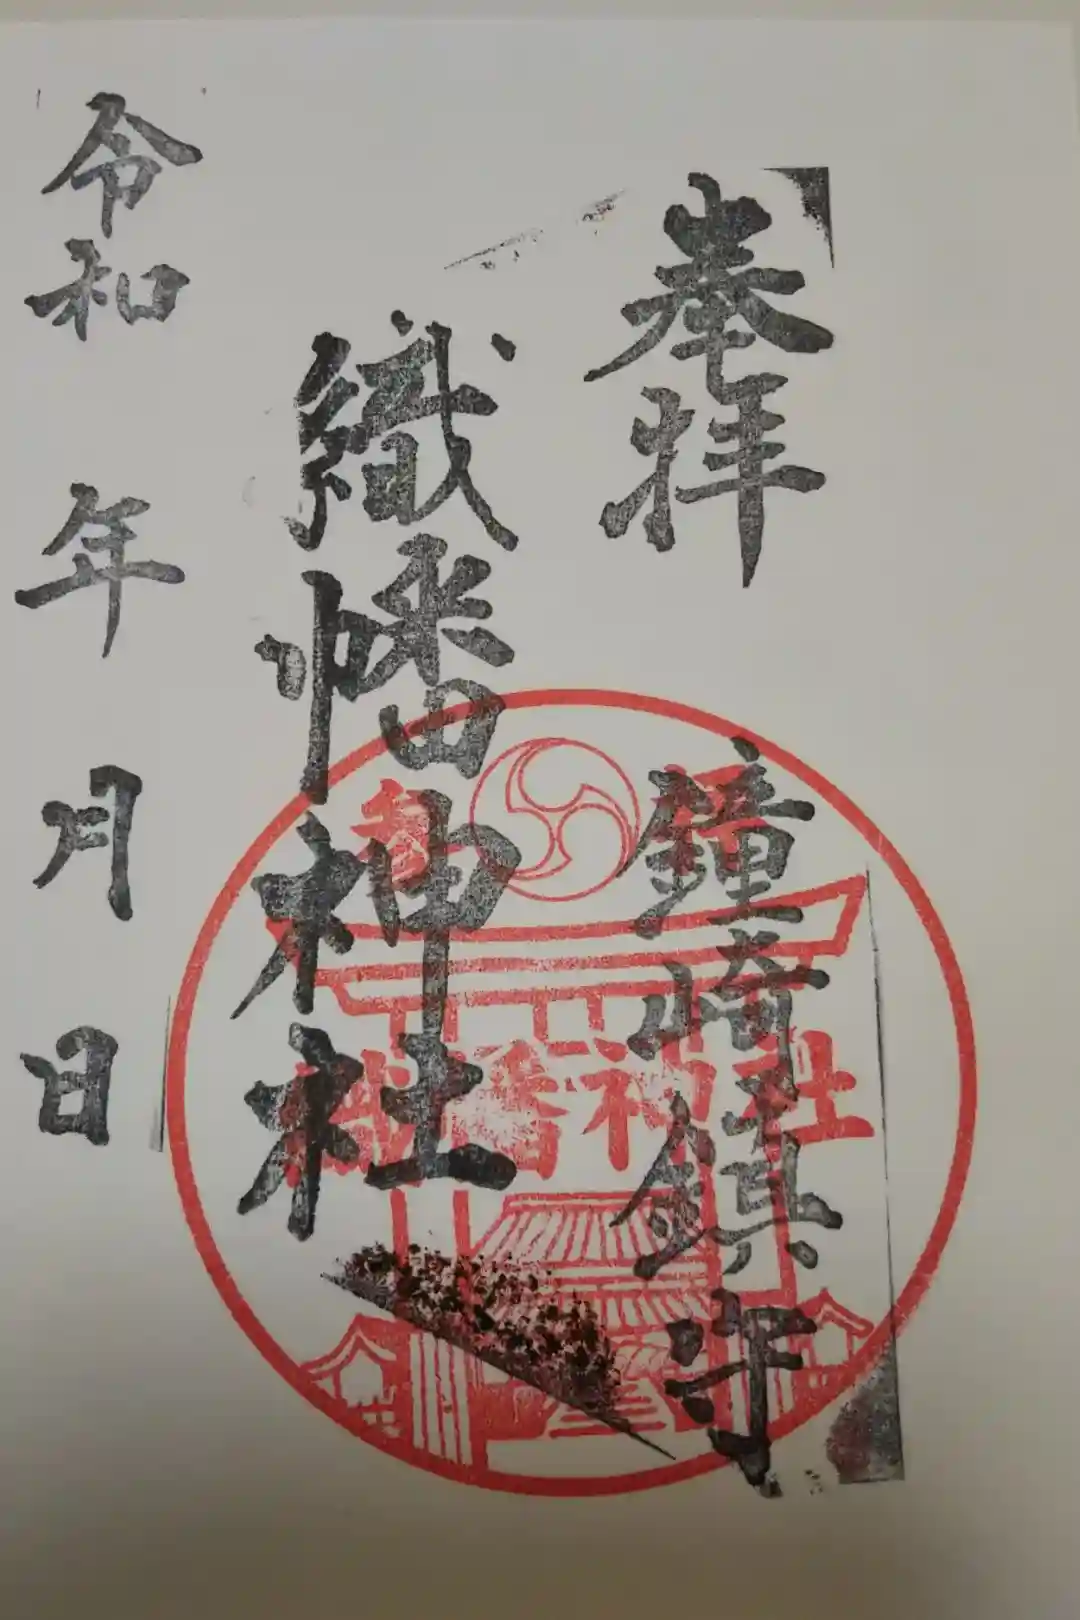 奉拝
鐘崎鎮守
織幡神社
令和 年 月 日
織幡神社